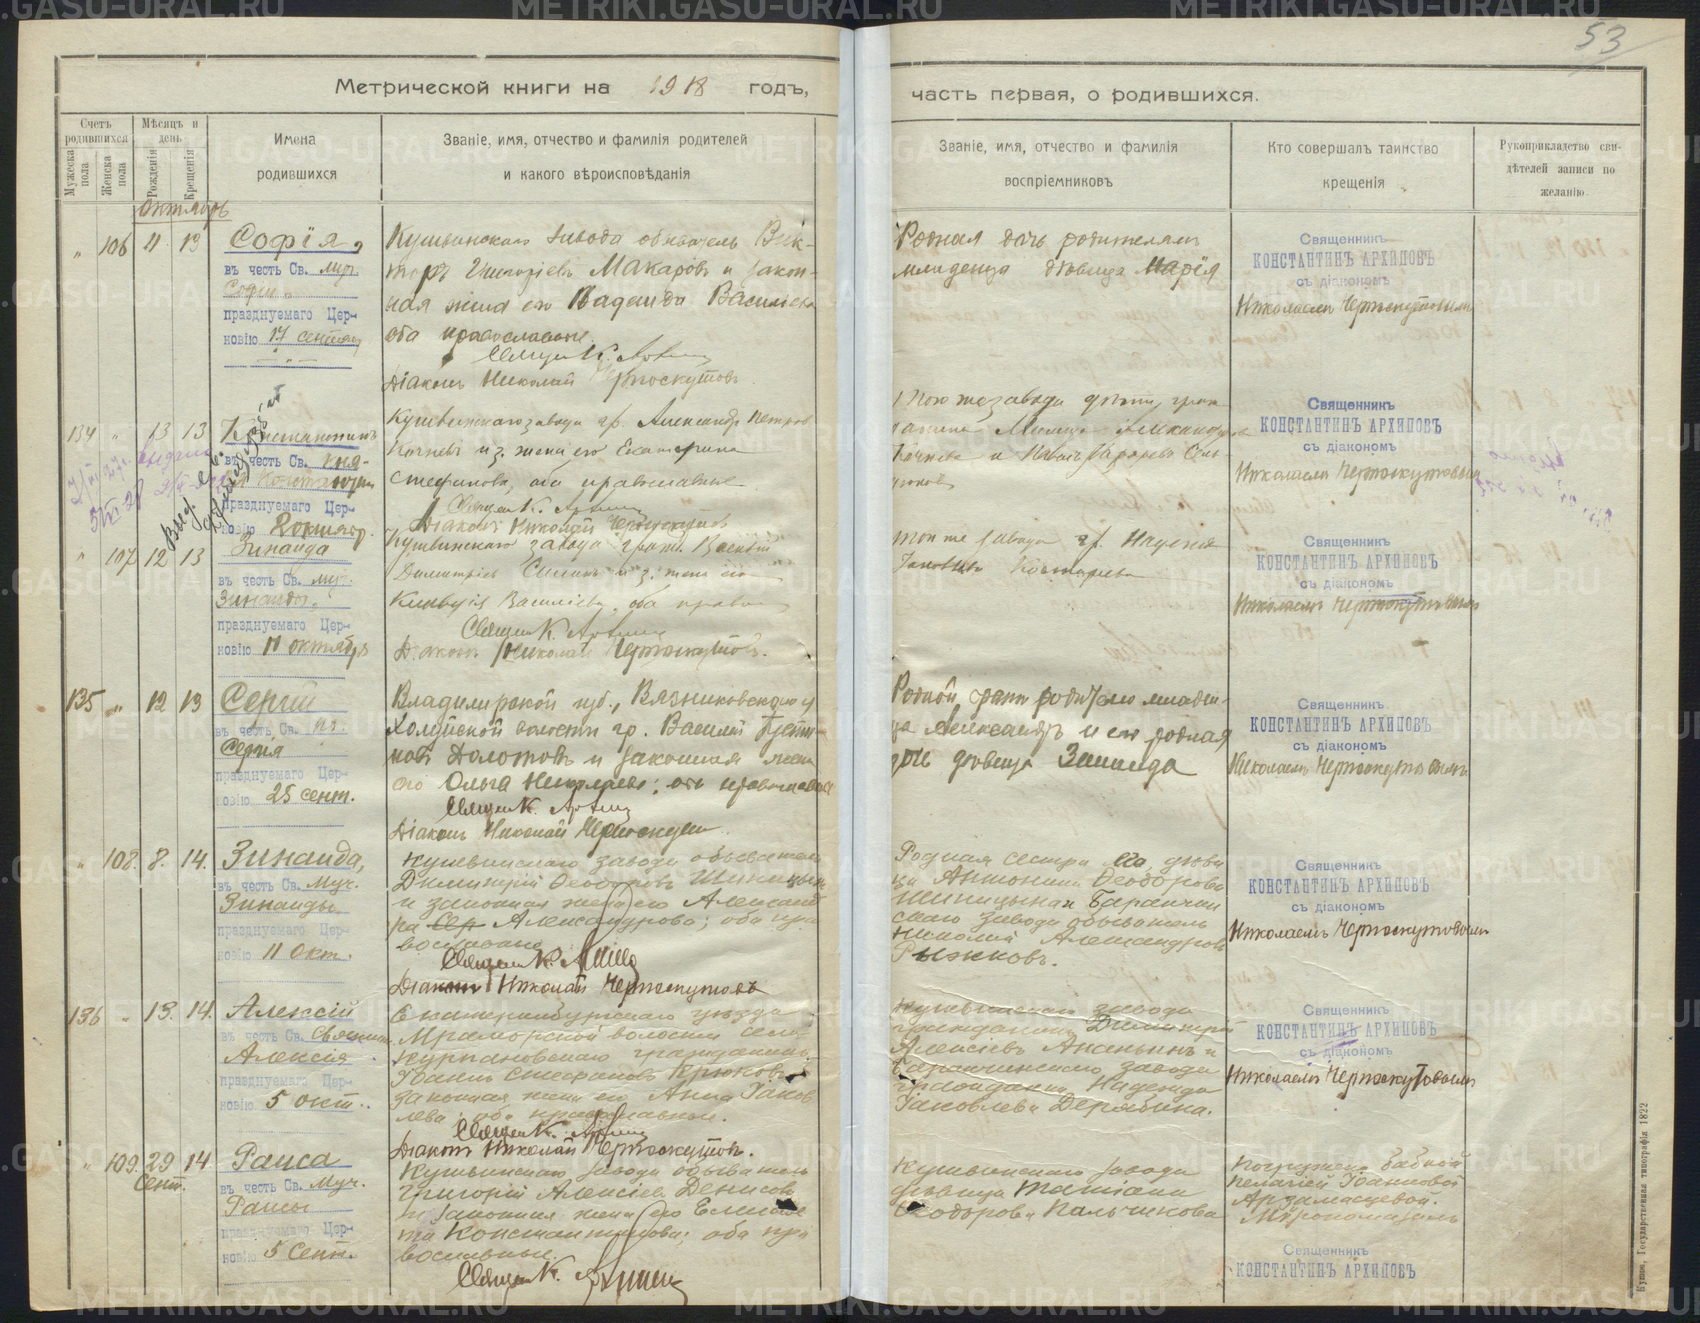 53
Метрической книги на 1918 годъ,
часть первая, о родившихся.
Счетъ родившихся
Мужеска пола
Женска пола
Мѣсяцъ и день
Рожденія
Крещенія
Имена
родившихся
Званіе, имя, отчество и фамилія родителей
и какого вѣроисповѣданія
Званіе, имя, отчество и фамилія
воспріемниковъ
Кто совершалъ таинство
крещенія
Рукоприкладство сви-
дѣтелей записи по
желанію
Октябрь
" 106 11 13
Софія,
въ честь Св. муч.
Софіи
празднуемаго Цер-
ковію 17 сентяб
Кушвинскаго завода обыватель Вик-
торъ Макаровъ и закон-
ная жена его Надежда Василіева
оба православные.
Священ К. Архип
Діаконъ Николай Черноскутовъ
Родная дочь родителямъ
младенца дѣвица Марія
Священникъ
КОНСТАНТИНЪ АРХИПОВЪ
съ діакономъ
Николаемъ Черноскутовымъ
134 " 13 13
Константинъ
въ честь Св. кня-
Константина
празднуемаго Цер-
ковію 2 октябр.
Кушвинскаго завода гр. Александръ Петровъ
и з. жена его Екатерина
Стефанова, оба православные
Священ К. Архип
Діаконъ Николай Черноскутовъ
Священникъ
КОНСТАНТИНЪ АРХИПОВЪ
съ діакономъ
Николаемъ Черноскутовымъ
" 107 12 13
Зинаида
въ честь Св. муч.
Зинаиды
празднуемаго Цер-
ковію 11 октября
Кушвинскаго завода гражд. Василій
Димитріевъ и з. жена его
Клавдія Василіева, оба правос
Священ К. Архип
Діаконъ Николай Черноскутовъ.
того же завода гр.
Священникъ
КОНСТАНТИНЪ АРХИПОВЪ
съ діакономъ
Николаемъ Черноскутовымъ
135 " 12 13
Сергій
въ честь Св. пр.
Сергія
празднуемаго Цер-
ковію 25 сент.
Владимірской губ., Вязниковскаго у
Холуйской волости гр. Василій Усти-
новъ Долотовъ и законная жена
его Ольга оба православные
Священ К. Архип
Діаконъ Николай Черноскутов
Родной братъ родителю младен-
ца Александръ и его родная
дочь дѣвица Зинаида
Священникъ
КОНСТАНТИНЪ АРХИПОВЪ
съ діакономъ
Николаемъ Черноскутовымъ
" 108. 8. 14.
Зинаида,
въ честь Св. Муч.
Зинаиды
празднуемаго Цер-
ковію 11 окт.
Кушвинскаго завода обыватель
Димитрій Ѳеодоровъ Шипицынъ
и законная жена его Александ
ра Александрова; оба пра
вославные
Священ К. Архип
Діаконъ Николай Черноскутовъ
Родная сестра его дѣви
ца Антонина Ѳеодорова
Шипицына и Баранчин
скаго завода обыватель
Николай Александровъ
Рыжковъ.
Священникъ
КОНСТАНТИНЪ АРХИПОВЪ
съ діакономъ
Николаемъ Черноскутовымъ
136 " 13. 14.
Алексій
въ честь Св. Священ.
Алексія
празднуемаго Цер-
ковію 5 окт.
Екатеринбургскаго уѣзда
Мраморской волости села
Кургановскаго гражданинъ
Іоаннъ Стефановъ Крюковъ и
законная жена его Анна Іаков
лева; оба православные.
Священ К. Архип
Діаконъ Николай Черноскутовъ.
Кушвинскаго завода
гражданинъ Димитрій
Алексіевъ Ананьинъ и
Баранчинскаго завода
гражданка Надежда
Іаковлева Дерябина.
Священникъ
КОНСТАНТИНЪ АРХИПОВЪ
съ діакономъ
Николаемъ Черноскутовымъ
" 109. 29 сент. 14
Раиса
въ честь Св. Муч.
Раисы
празднуемаго Цер-
ковію 5 Сент.
Кушвинскаго завода обыватель
Григорій Алексіевъ Денисовъ
и законная жена его Елиса
та Константинова; оба пра
вославные.
Священ К. Архип
Кушвинскаго завода
дѣвица Татіана
Ѳеодорова Пальчикова
Погружена бабкой
Пелагіей Іоанновой
Арзамасцевой.
Мѵропомазалъ
Священникъ
КОНСТАНТИНЪ АРХИПОВЪ
Государственная типографія 1822
METRIKI.GASU-URAL.RU